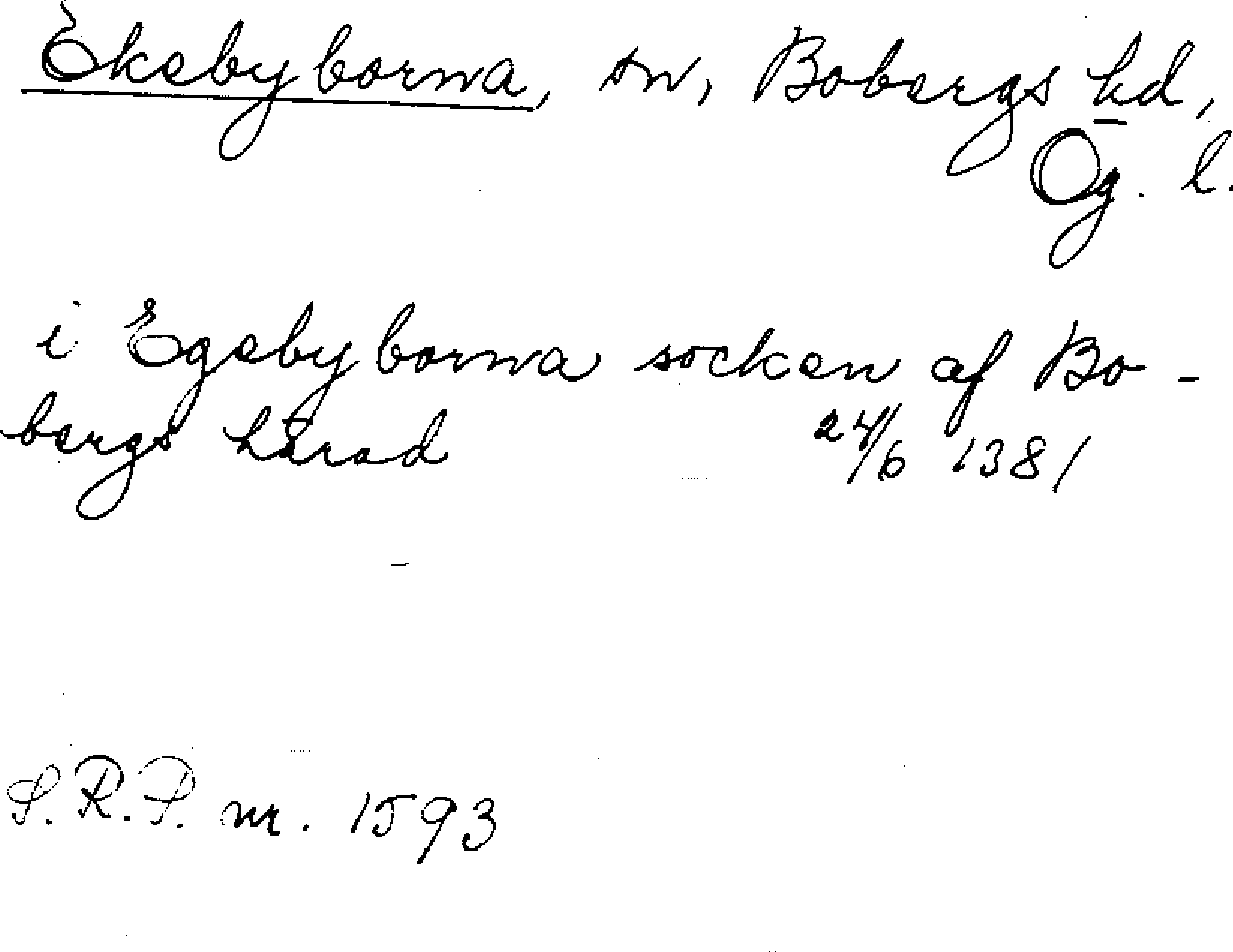 Ekebyborna, sn, Bobergs hd,
Ög. l.
i Egebyborna socken af Bo-
bergs härad 24/6 1381
S.R.P. nr. 1593